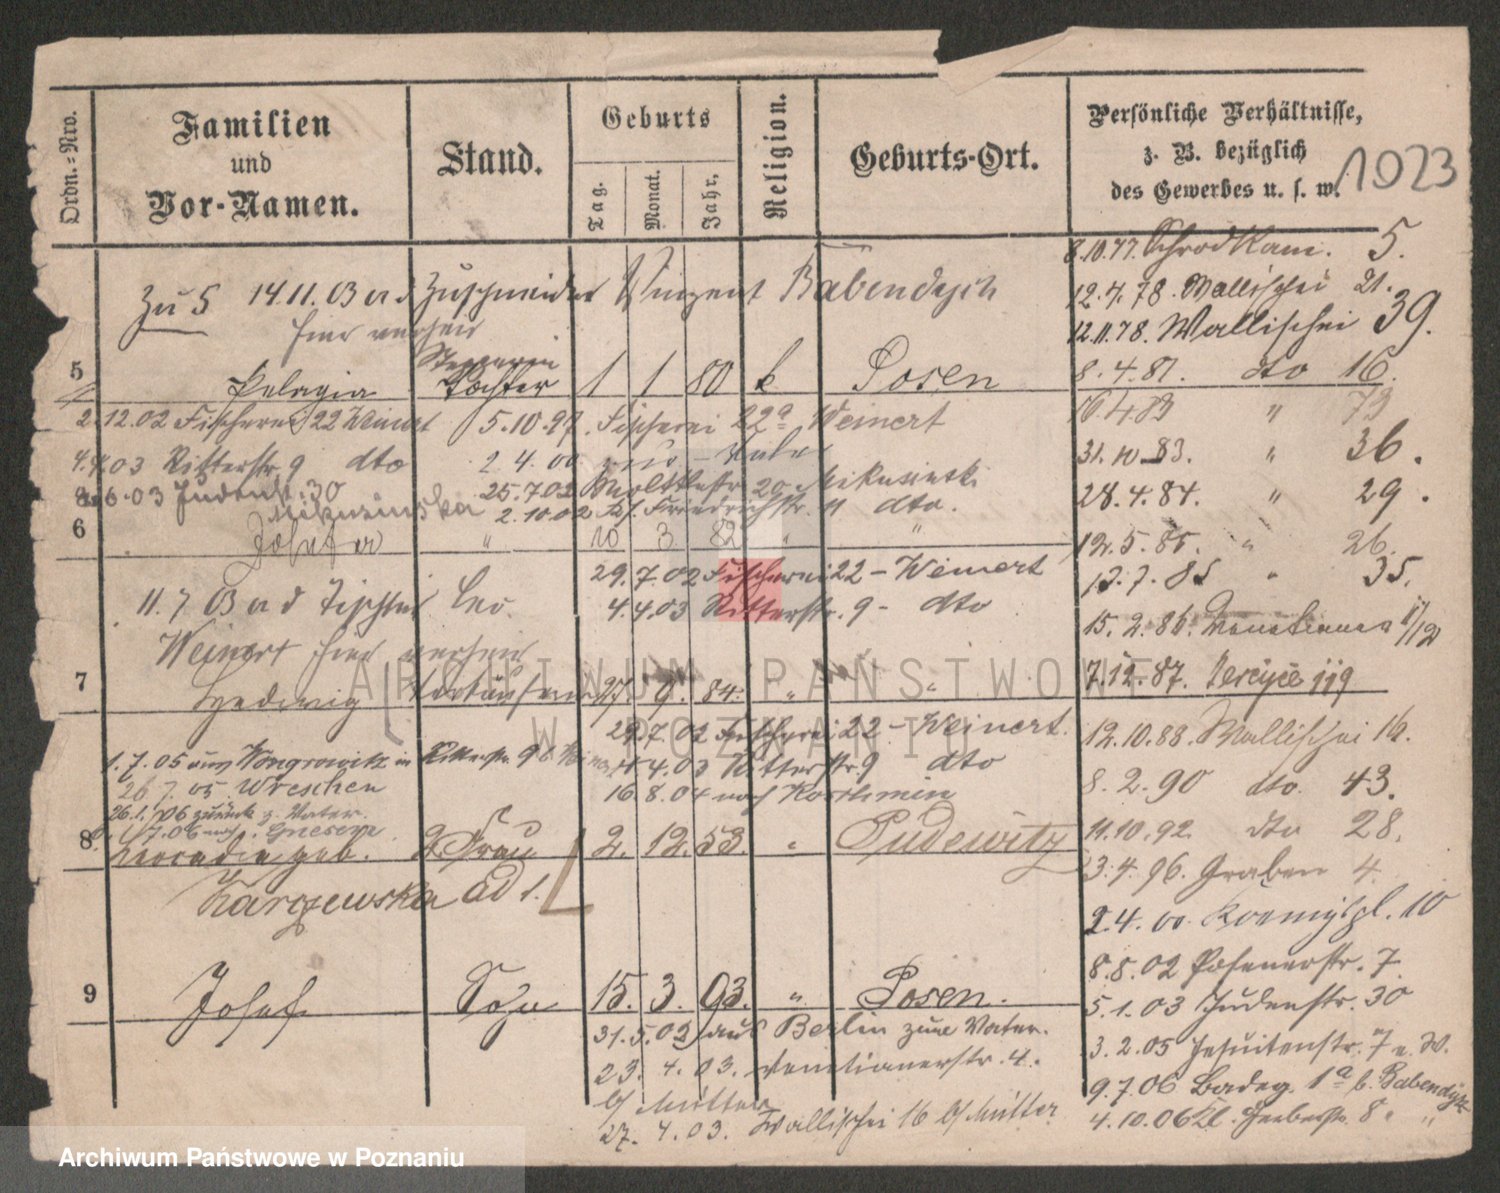 Ordn.-Nro.
Familien
und
Vor-Namen.
Stand.
Geburts
Tag.
Monat.
Jahr.
Religion.
Geburts-Ort.
Persönliche Verhältnisse,
z. B. bezüglich
des Gewerbes u. s. w.
1023
zu 5 14.11.03 Zuschneider Vinzent Babendysch
hier
5 Pelagia Tochter 1 1 80 k Posen
2.12.02 Fischerei 22 Weinert 5.10.97. Fischerei 22a Weinert
4.4.03 Ritterstr. 9 dto 2.4.00
6.03 Judenstr. 30 25.7.02 20 Mikusinski
Mikusinska 2.10.02 Friedrichstr. 11 dto.
6 Josefa " 10 3 82 " "
29.7.02 Fischerei 22 - Weinert
11.7.03 Tischler Leo 4.4.03 Ritterstr. 9 - dto
Weinert hier
7 Hedwig 27. 9. 84. " "
29.7.02 Fischerei 22 - Weinert.
1.7.05 Wongrowitz 4.03 Ritterstr. 9 dto
26.7.05 Wreschen 16.8.04 nach Koschmin
26.1.06 zurück z. Vater.
7.06 nach Gnesen
8 Leocadia geb. 2. Frau 2. 12. 53. " Pudewitz
Karczewska ad 1.
9 Josef Sohn 15. 3. 93. " Posen.
31.5.02 aus Berlin zum Vater.
23. 4. 03. Venetianerstr. 4.
b/ Mutter
27. 4. 03. Wallischei 16 b/ Mutter
8.10.77. Schrodkam. 5.
12.4.78. Wallischei 21.
12.11.78. Wallischei 39.
8.4.81. dto 16.
16.4.83 " 73
31.10.83. " 36.
28.4.84. " 29.
12.5.85. " 26.
13.7.85 " 35.
15.2.86. 11/12
7.12.87. 119
12.10.88. Wallischei 16.
8.2.90 dto. 43.
11.10.92. dto 28.
23.4.96. Graben 4.
2.4.00. Koenigspl. 10
8.8.02 Posenerstr. 7.
5.1.03 Judenstr. 30
3.2.05 Jesuitenstr. 7
9.7.06 Badeg. 1a b. Babendysch
4.10.06 Kl. Gerberstr. 8. "
ARCHIWUM PAŃSTWOWE
W POZNANIU
Archiwum Państwowe w Poznaniu